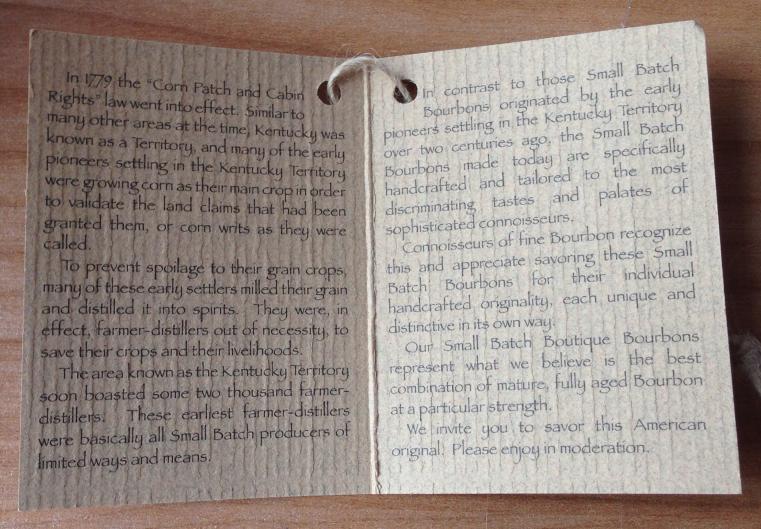 In 1779 the "Corn Patch and Cabin
Rights" law went into effect. Similar to
many other areas at the time, Kentucky was
known as a Territory, and many of the early
pioneers settling in the Kentucky Territory
were growing corn as their main crop in order
to validate the land claims that had been
granted them, or corn writs as they were
called.
To prevent spoilage to their grain crops,
many of these early settlers milled their grain
and distilled it into spirits. They were, in
effect, farmer-distillers out of necessity, to
save their crops and their livelihoods.
The area known as the Kentucky Territory
soon boasted some two thousand farmer-
distillers. These earliest farmer-distillers
were basically all Small Batch producers of
limited ways and means.
In contrast to those Small Batch
Bourbons originated by the early
pioneers settling in the Kentucky Territory
over two centuries ago, the Small Batch
Bourbons made today are specifically
handcrafted and tailored to the most
discriminating tastes and palates of
sophisticated connoisseurs.
Connoisseurs of fine Bourbon recognize
this and appreciate savoring these Small
Batch Bourbons for their individual
handcrafted originality, each unique and
distinctive in its own way.
Our Small Batch Boutique Bourbons
represent what we believe is the best
combination of mature, fully aged Bourbon
at a particular strength.
We invite you to savor this American
original. Please enjoy in moderation.